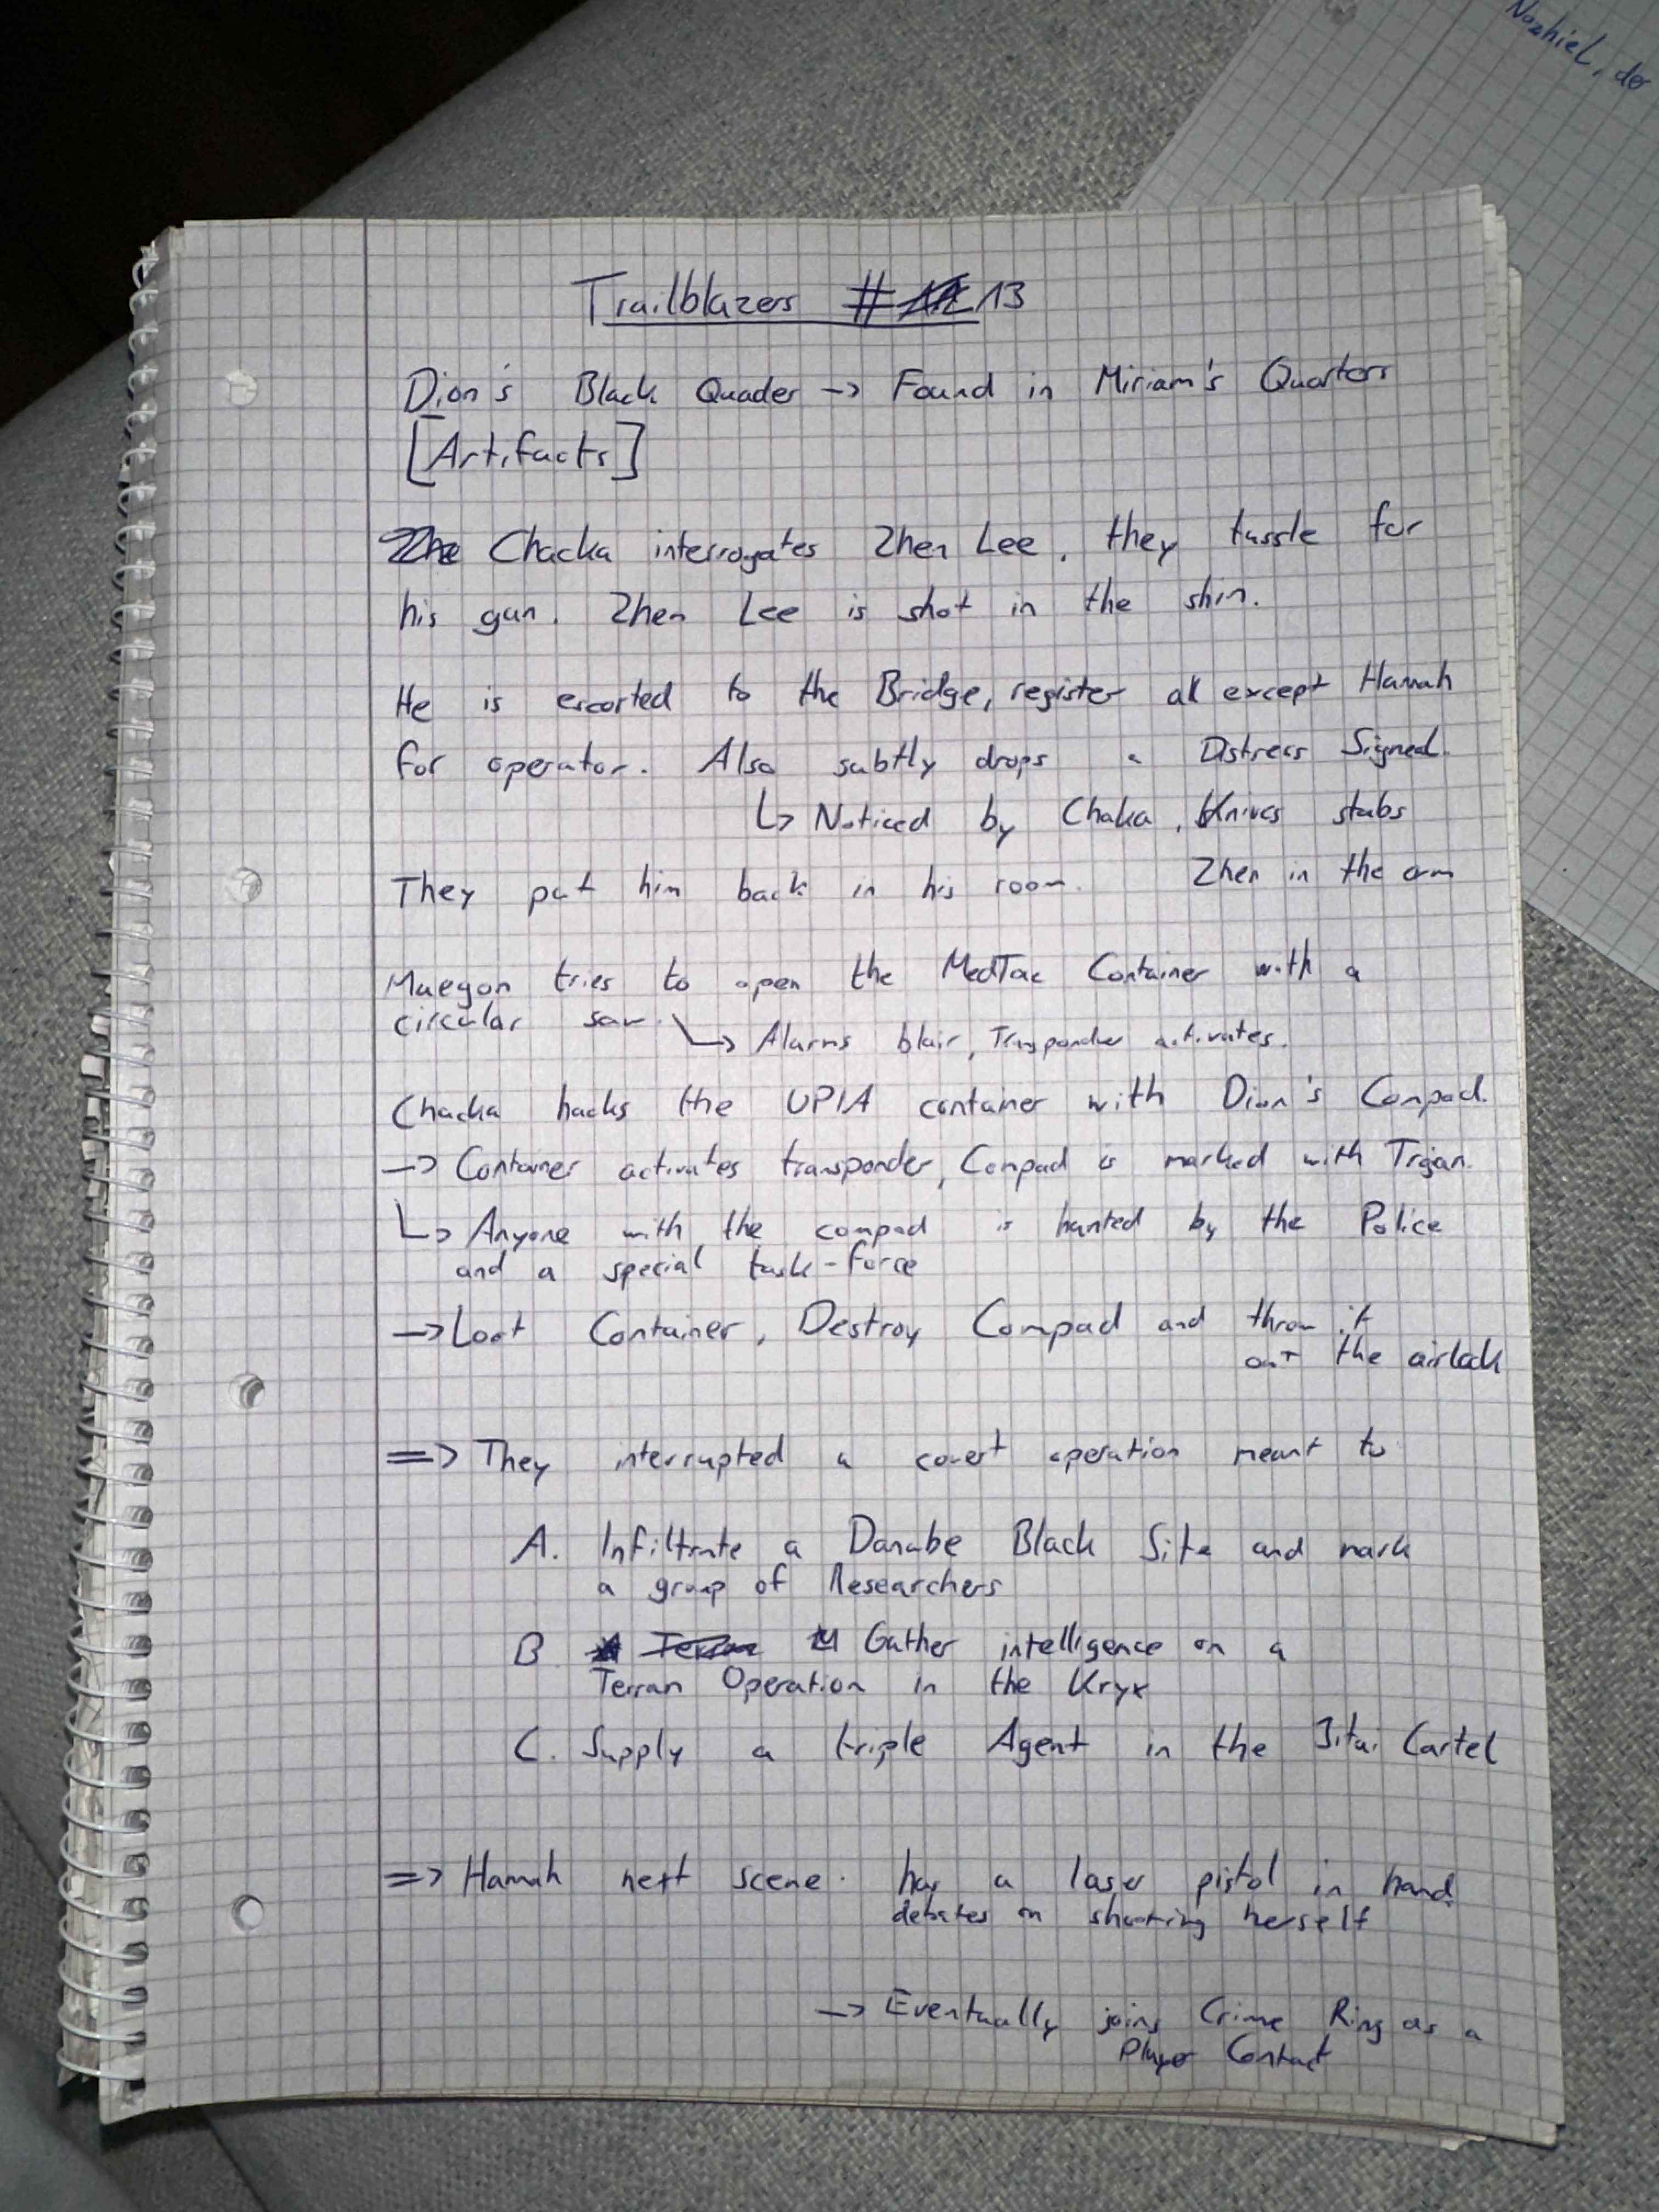 Nozhiel, der
Trailblazers # 13
Dion's Black Quader -> Found in Miriam's Quarters
[Artifacts]
Chacka interrogates Zhen Lee, they tussle for
his gun. Zhen Lee is shot in the shin.
He is escorted to the Bridge, register all except Hannah
for operator. Also subtly drops a Distress Signal.
↳ Noticed by Chaka, Knives stabs
Zhen in the arm
They put him back in his room.
Maegon tries to open the MedTac Container with a
circular saw. -> Alarms blair, Transponder activates.
Chacka hacks the UPIA container with Dion's Compad.
-> Container activates transponder, Compad is marked with Trojan.
↳ Anyone with the compad is hunted by the Police
and a special task-force
-> Loot Container, Destroy Compad and throw it
out the airlock
=> They interrupted a covert operation meant to
A. Infiltrate a Danube Black Site and mark
a group of Researchers
B Gather intelligence on a
Terran Operation in the Kryx
C. Supply a triple Agent in the Jitai Cartel
=> Hannah next scene. has a laser pistol in hand.
debates on shooting herself
-> Eventually joins Crime Ring as a
Player Contact